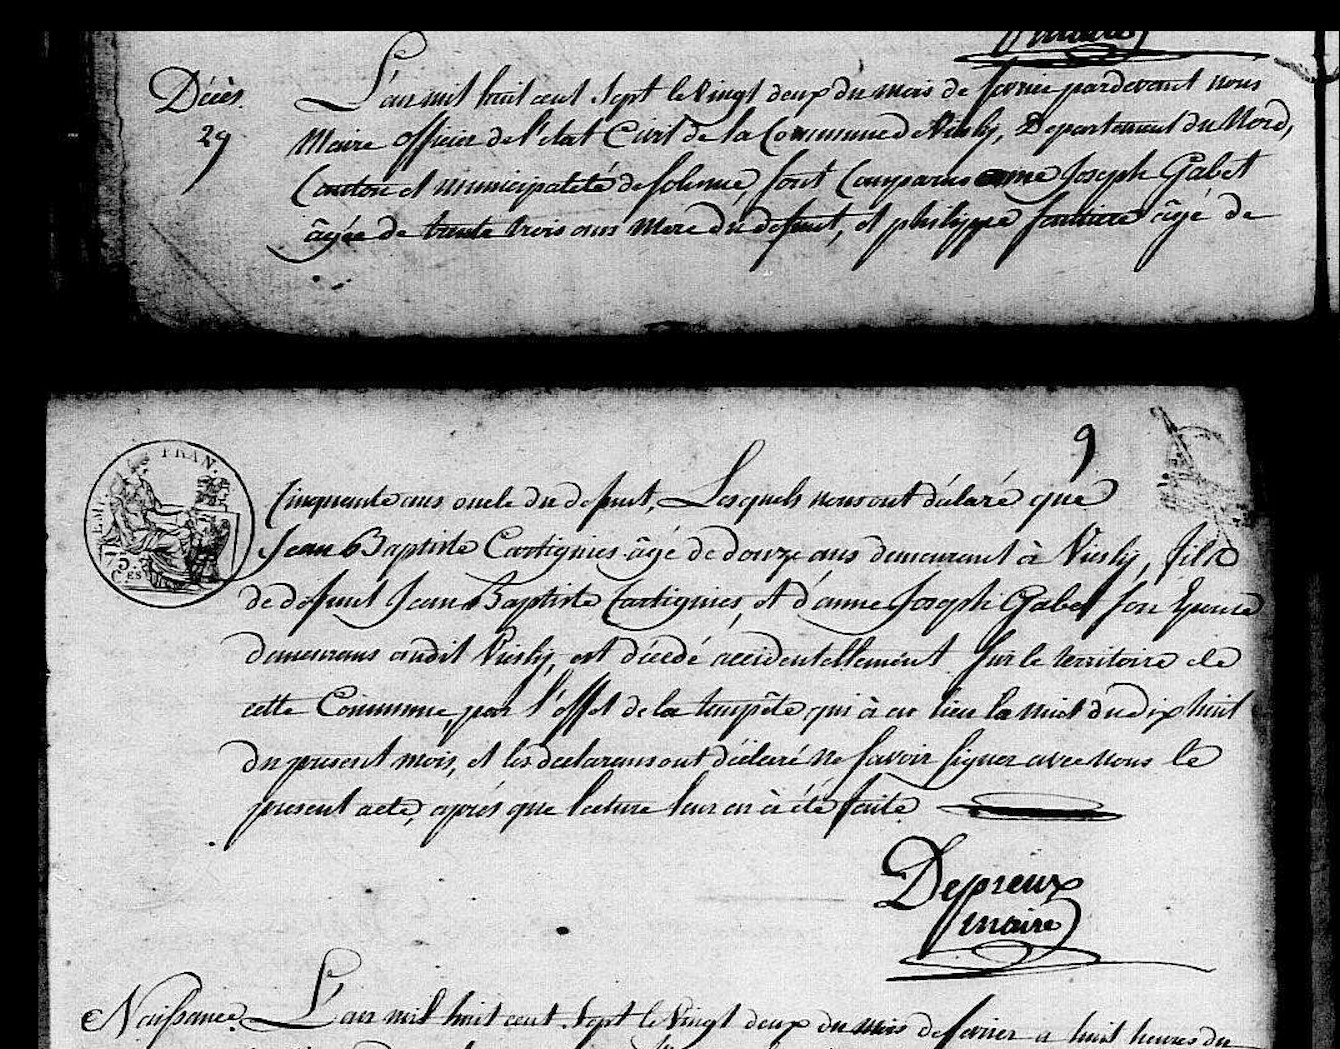 maire
Décès
29
L'an mil huit cent Sept le Vingt deux du mois de fevrier pardevant nous
Maire officier de l'état Civil de la Commune de Viesly, Departement du Nord,
Canton et municipalité de solesme, sont Comparus anne Joseph Gabet
âgée de trente trois ans Mere du defunt, et philippe âgé de
9
EMP. FRAN.
5.
C.ES
Cinquante ans oncle du defunt, Lesquels nous ont déclaré que
Jean Baptiste Cartignies âgé de douze ans demeurant à Viesly, fils
de defunt Jean Baptiste Cartignies, et d'anne Joseph Gabet son Epouse
demeurans audit Viesly, est décédé accidentellement sur le territoire de
cette Commune par l'effet de la tempête qui à eu lieu la nuit du dix huit
du present mois, et les declarans ont déclaré ne savoir signer avec nous le
present acte, aprés que lecture leur en à été faite
Depreux
maire
Naissance. L'an mil huit cent Sept le Vingt deux du mois de fevrier a huit heures du